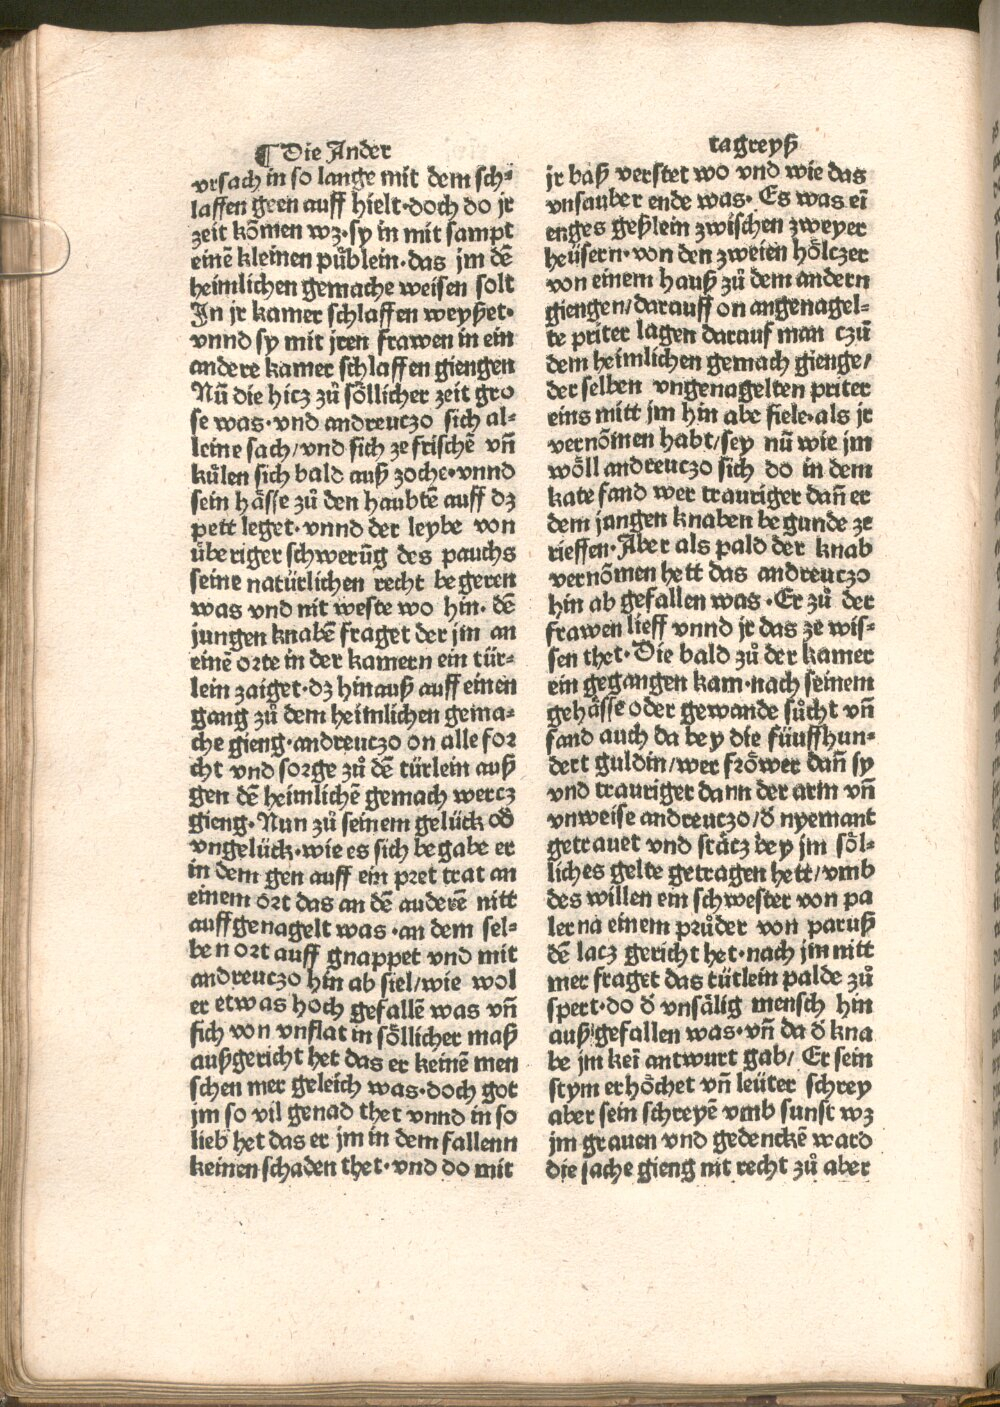 ¶ Die Ander
vrsach in so lange mit dem sch⸗
laffen geen auff hielt·doch do jr
zeit kōmen wz·sy in mit sampt
einē kleinen püblein·das jm dē
heimlichen gemache weisen solt
In jr kamer schlaffen weyßet·
vnnd sy mit jren frawen in ein
andere kamer schlaffen giengen
Nū die hicz zů söllicher zeit gro
se was·vnd andreuczo sich al⸗
leine sach/vnd sich ze frischē vñ
külen sich bald auß zoche·vnnd
sein hässe zů den haubtē auff dz
pett leget·vnnd der leybe von
überiger schwerūg des pauchs
seine natürlichen recht begeren
was vnd nit weste wo hin·dē
jungen knabē fraget der jm an
einē orte in der kamern ein tür⸗
lein zaiget·dz hinauß auff einen
gang zů dem heimlichen gema⸗
che gieng·andreuczo on alle for
cht vnd sorge zů dē türlein auß
gen dē heimlichē gemach wercz
gieng·Nun zů seinem gelück od̓
vngelück·wie es sich begabe er
in dem gen auff ein pret trat an
einem ort das an dē anderē nitt
auffgenagelt was·an dem sel⸗
ben ort auff gnappet vnd mit
andreuczo hin ab fiel/wie wol
er etwas hoch gefallē was vñ
sich von vnflat in söllicher maß
außgericht het das er keinē men
schen mer geleich was·doch got
jm so vil genad thet vnnd in so
lieb het das er jm in dem fallenn
keinen schaden thet·vnd do mit
tagreyß
jr baß verstet wo vnd wie das
vnsauber ende was· Es was eī
enges geßlein zwischen zweyer
heüsern·von den zweien hölczer
von einem hauß zů dem andern
giengen/darauff on angenagel⸗
te priter lagen darauf man czů
dem heimlichen gemach gienge/
der selben vngenagelten priter
eins mitt jm hin abe fiele·als jr
vernōmen habt/sey nū wie jm
wöll andreuczo sich do in dem
kate fand wer trauriger dañ er
dem jungen knaben begunde ze
rieffen·Aber als pald der knab
vernōmen hett das andreuczo
hin ab gefallen was·Er zů der
frawen lieff vnnd jr das ze wis⸗
sen thet·Die bald zů der kamer
ein gegangen kam·nach seinem
gehässe oder gewande sůcht vñ
fand auch da bey die füuffhun⸗
dert guldin/wer fröwer dañ sy
vnd trauriger dann der arm vñ
vnweise andreuczo/d̓ nyemant
getrauet vnd stätz bey jm söl⸗
liches gelte getragen hett/vmb
des willen ein schwester von pa
lerna einem průder von paruß
dē lacz gericht het·nach jm nitt
mer fraget das tütlein palde zů
spert·do d̓ vnsälig mensch hin
auß gefallen was·vñ da d̓ kna
be jm keī antwurt gab/ Er sein
stym erhöchet vñ leüter schrey
aber sein schreyē vmb sunst wz
jm grauen vnd gedenckē ward
die sache gieng nit recht zů aber